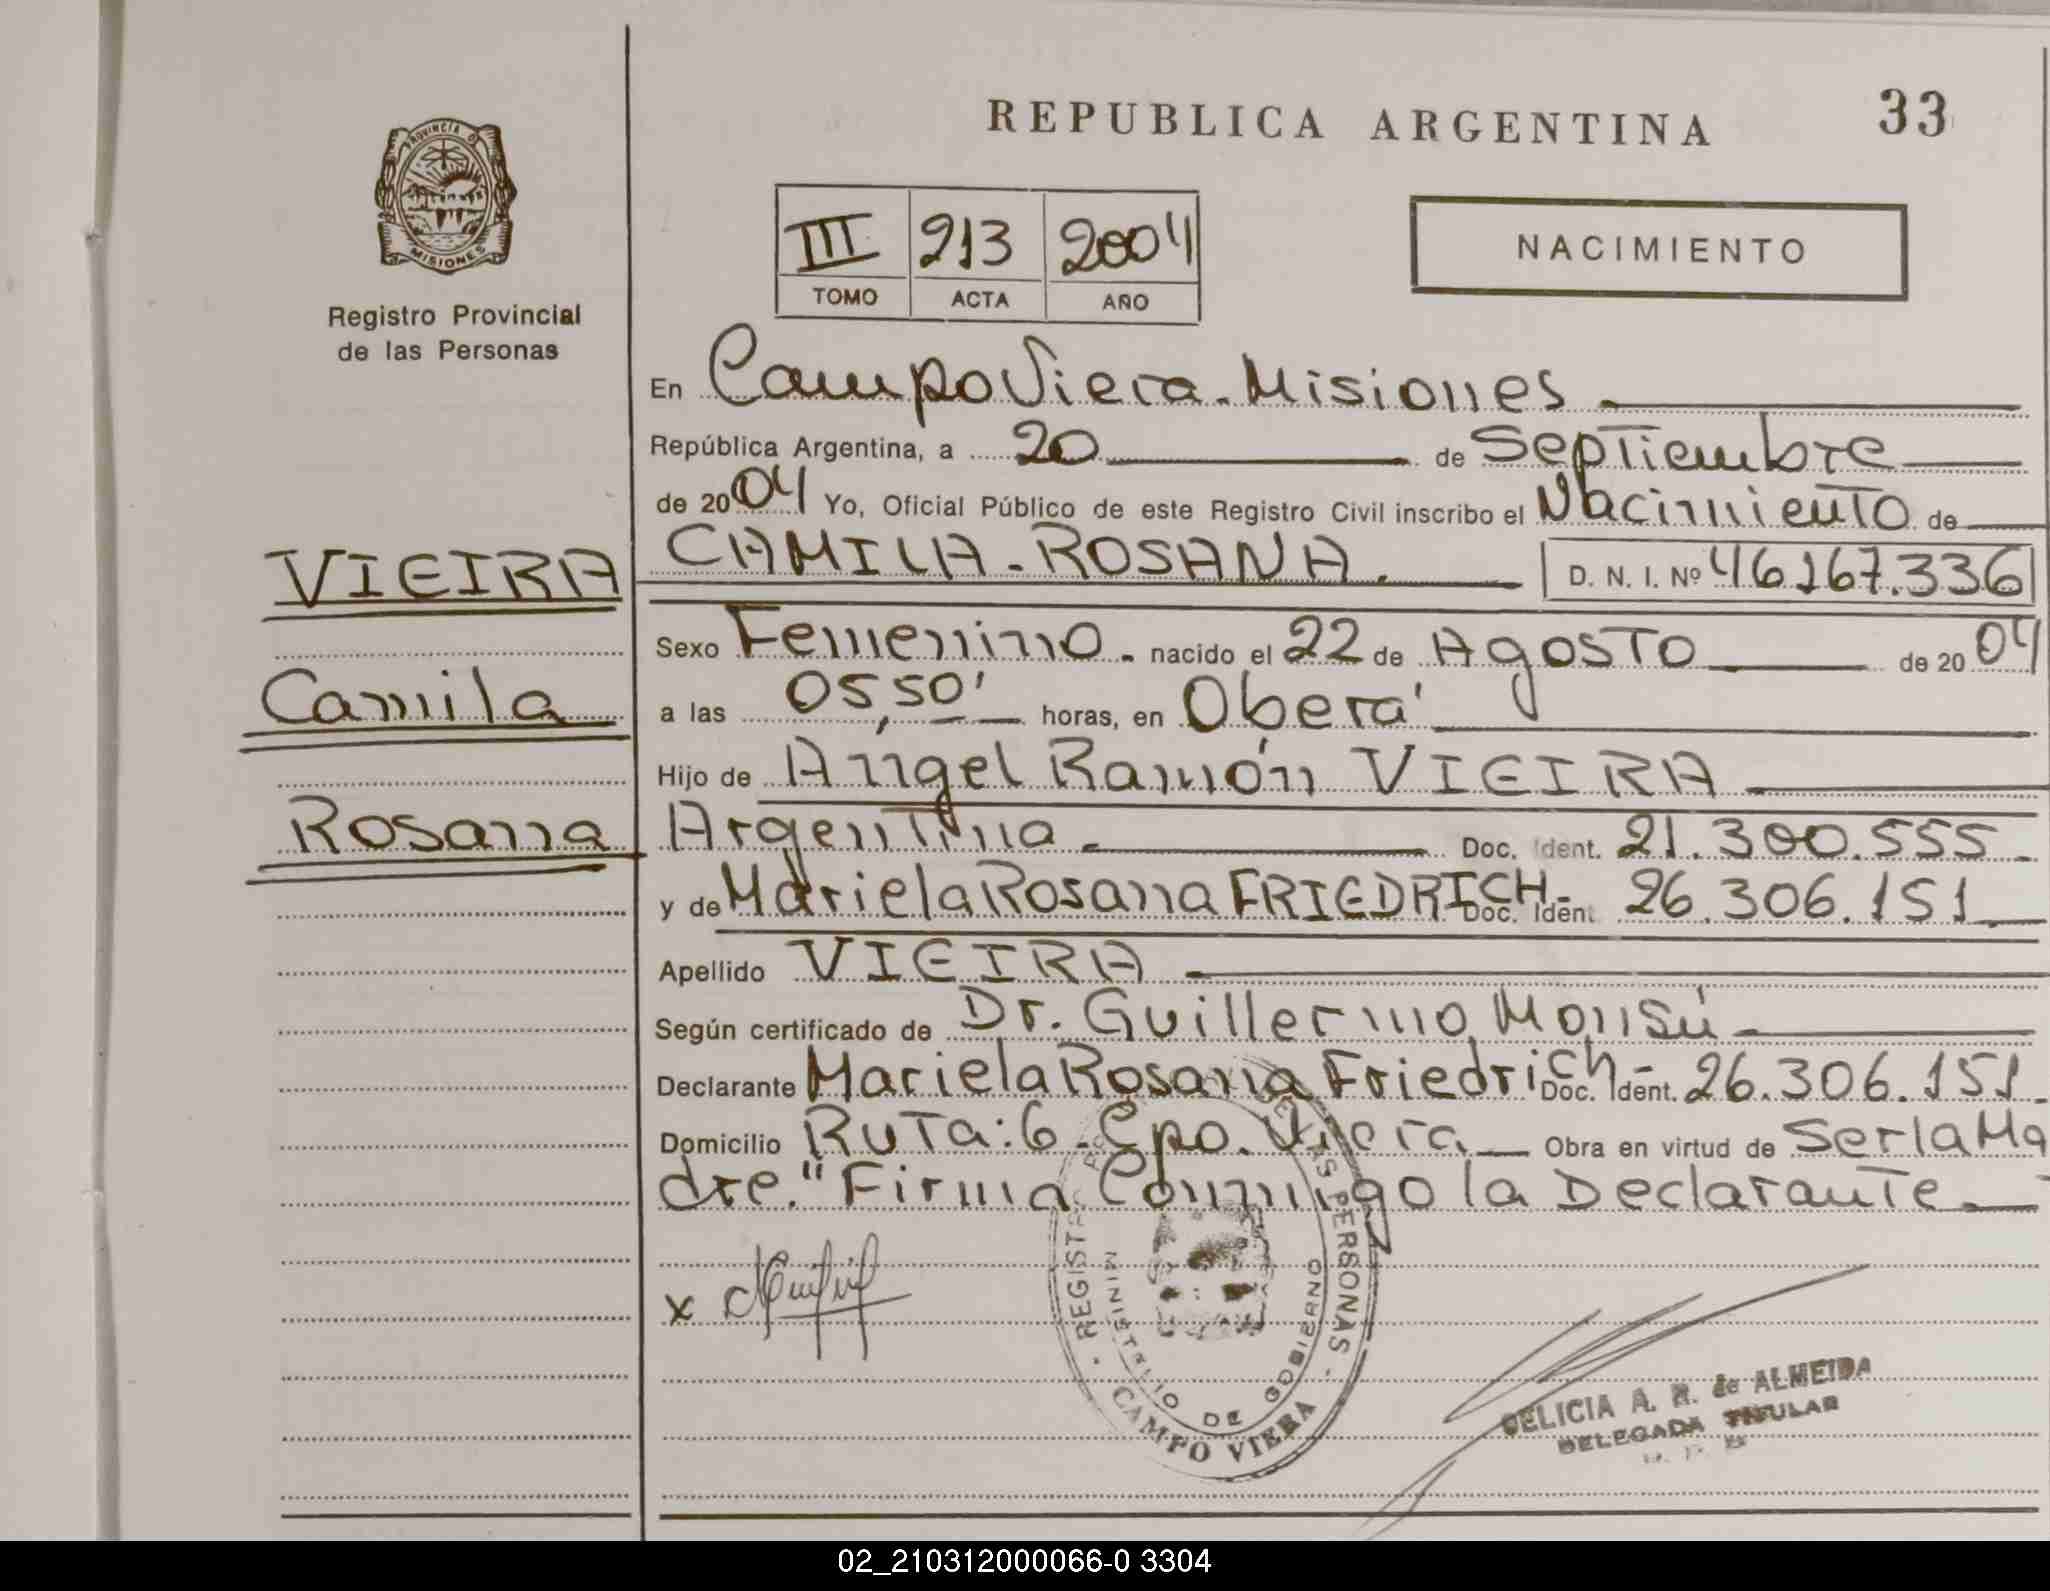 REPUBLICA ARGENTINA
33
PROVINCIA DE
MISIONES
Registro Provincial
de las Personas
III 213 2004
TOMO ACTA AÑO
NACIMIENTO
En Campo Viera - Misiones
República Argentina, a 20 de Septiembre
de 2004 Yo, Oficial Público de este Registro Civil inscribo el Nacimiento de
VIEIRA
CAMILA - ROSANA. D. N. I. Nº 46167.336
Sexo Femenino - nacido el 22 de Agosto de 2004
Camila
a las 05,50' horas, en Oberá
Hijo de Angel Ramón VIEIRA
Rosana
Argentina - Doc. Ident. 21.300.555 -
y de Mariela Rosana FRIEDRICH - Doc. Ident 26.306.151
Apellido VIEIRA
Según certificado de Dr. Guillermo Monsú
Declarante Mariela Rosana Friedrich - Doc. Ident. 26.306.151 -
Domicilio Ruta: 6 - Cpo. Viera Obra en virtud de Ser la Ma
dre." Firma Conmigo la Declarante
x
REGISTRO PERSONAS
MINISTERIO DE GOBIERNO
CAMPO VIERA
A. R. de ALMEIDA
DELEGADA TITULAR
02_210312000066-0 3304